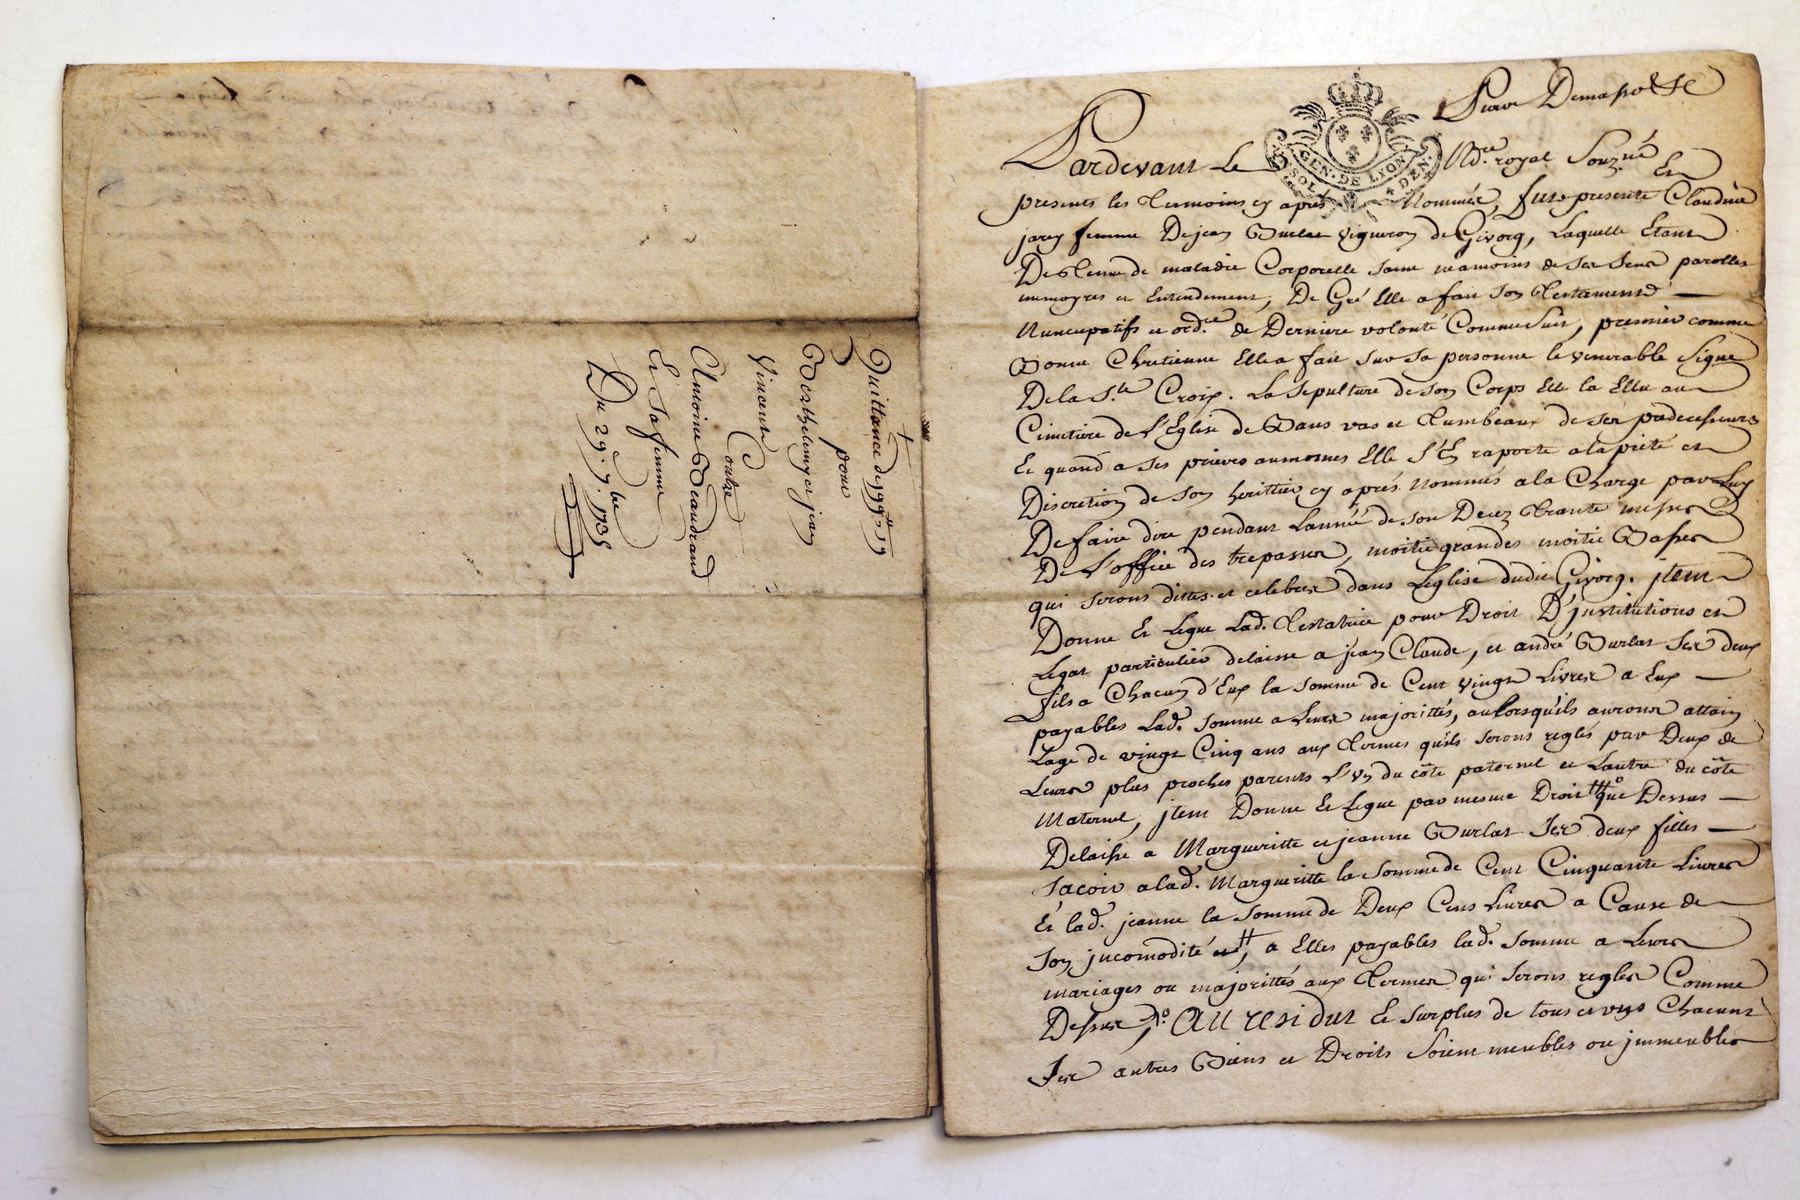 Quittance de 199ˡᵗ 19
pour
Berthelemy et jean
Vincent
Contre
Antoine Beaudrand
Et sa femme
Du 29. 7.bre 1735
GEN. DE LYON
SOL DEN.
Pardevant Le Nd.re royal Souz.né Et
presents les thermoins cy aprés Nommés, fust presente Claudine
jarey femme De jean Burlat vigneron de Givorq, Laquelle Etant
Detenue de maladie Corporelle saine neamoins de ses sens parolles
memoyres et Entendement, De Gré Elle a fait son Testament
Nuncupatifs et ord.re de Derniere volonté Comme suit, premier comme
Bonne Chretienne Elle a fait sur sa personne le venerable signe
De la S.te Croix. La sepulture de son Corps Elle la Ellu au
Cimetiere de L'Eglise de Bans vas et tumbeaux de ses predecesseurs
Et quand a ses prieres aumosnes Elle s'En raporte a la pieté et
Discretion de son heritier cy aprés Nommés a la Charge par Luy
De faire dire pendant L'année de son Decez trante messes
De L'office des trepasses, moitié grandes moitié Basses
qui seront dittes et celebres dans L'eglise dudit Givorq. jtem
Donne Et Legue Lad. testatrice pour Droit D'justitutions et
Legat particulier delaisse a jean Claude, et andré Burlat ses deux
fils a Chacun d'Eux la somme de Cent vingt Livres a Eux
payables Lad. somme a Leurs majorittés, au Lorsqu'ils auront attain
Lage de vingt Cinq ans aux termes qu'ils seront reglés par Deux de
Leurs plus proches parents L'un du côte paternel et Lautre du côte
Maternel, jtem Donne Et Legue par mesme Droit que Dessus
Delaisse a Margueritte et jeanne Burlat ses deux filles
sacoir a lad. Margueritte la somme de Cent Cinquante Livres
Et lad. jeanne la somme de Deux Cens Livres a Cause de
son jncomodité et, a Elles payables lad. somme a Leurs
mariages ou majorittés aux termes qui seront regles Comme
Dessus, Au residut Et surplus de tous et uns Chacuns
ses autres Biens et Droits soient meubles ou jmmeubles